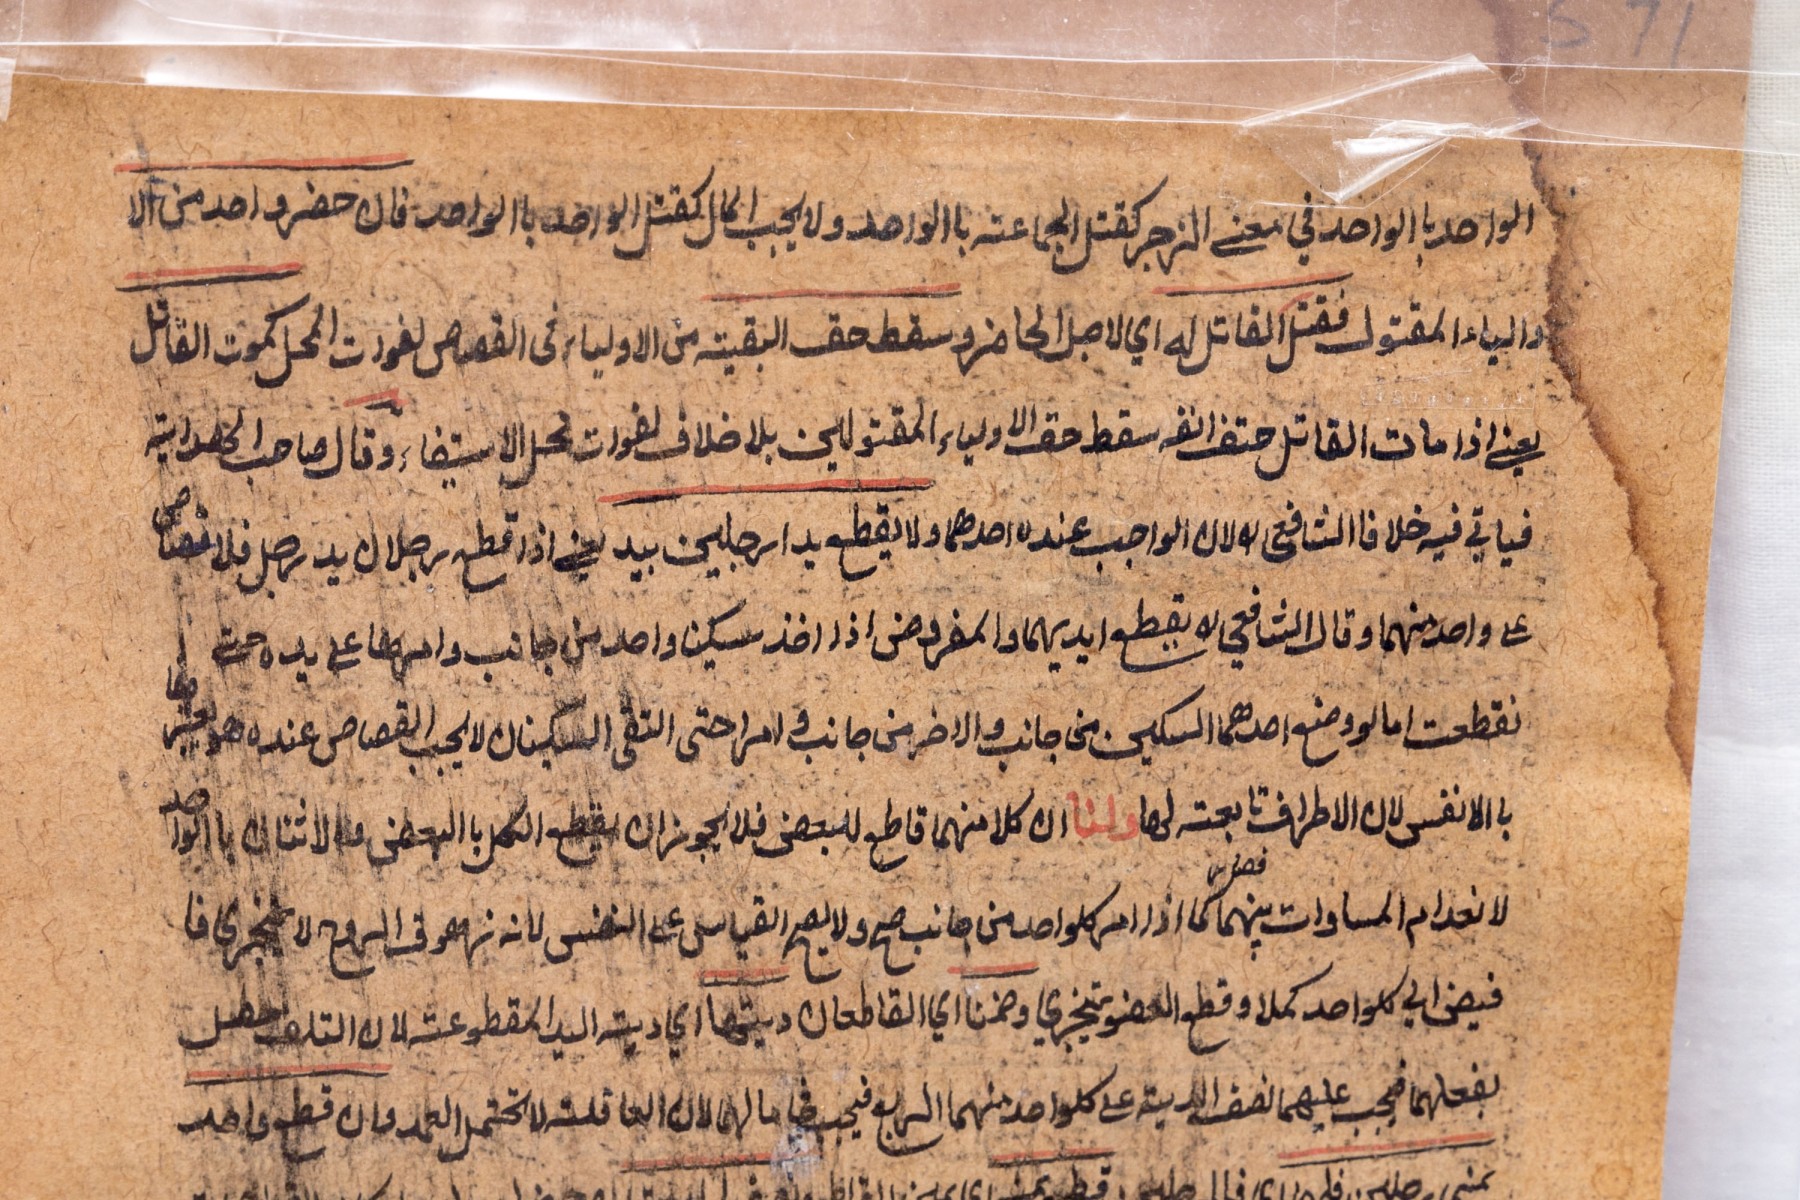 S 71
الواحد باالواحد في معنے الزجر كقتل الجماعته باالواحد ولا يجب المال كقتل الواحد باالواحد فان حضر واحد من الا
والياء المقتول فقتل القاتل له اي لاجل الحاضر و سقط حق البقيته من الاولياء فى القصاص لفوت المحل كموت القاتل
يعنے اذا مات القاتل حتف انفه سقط حق الاولياء المقتولين بلا خلاف لفوات محل الاستيفاء وقال صاحب الهدايته
فياتي فيه خلافا الشافعى له لان الواجب عنده احدهما ولا يقطع يدا رجلين بيد يعنے اذا قطع رجلان يد رجل فلا قصاص
علے واحد منهما وقال الشافعي له يقطع ايديهما والمفروض اذا اخذ سكينا واحد من جانب وامرها علے يده حتے
نقطعت اما لو وضع احدهما السكين من جانب والاخر من جانب و امرا حتى التقى السكينان لا يجب القصاص عنده هو
باالانفس لان الاطراف تابعته لها ولنا ان كلا منهما قاطع للبعض فلا يجوز ان يقطع الكل باالبعض ولا الاثنان باالواحد
لانعدام المساوات بينهما كما اذا امر كلواحد من جانب صح ولا يصح القياس علے النفس لانه زهوق الروح لا يتجزي فا
فيضى الي كلواحد كملا وقطع العضو يتجزي وضمنا اي القاطعان ديتها اي ديته اليد المقطوعته لان التلف حصل
بفعلهما فيجب عليهما نصف الديته علے كلواحد منهما الربع فيجب في مالهما لان العاقلته لا تحتمل العمد وان قطع واحد